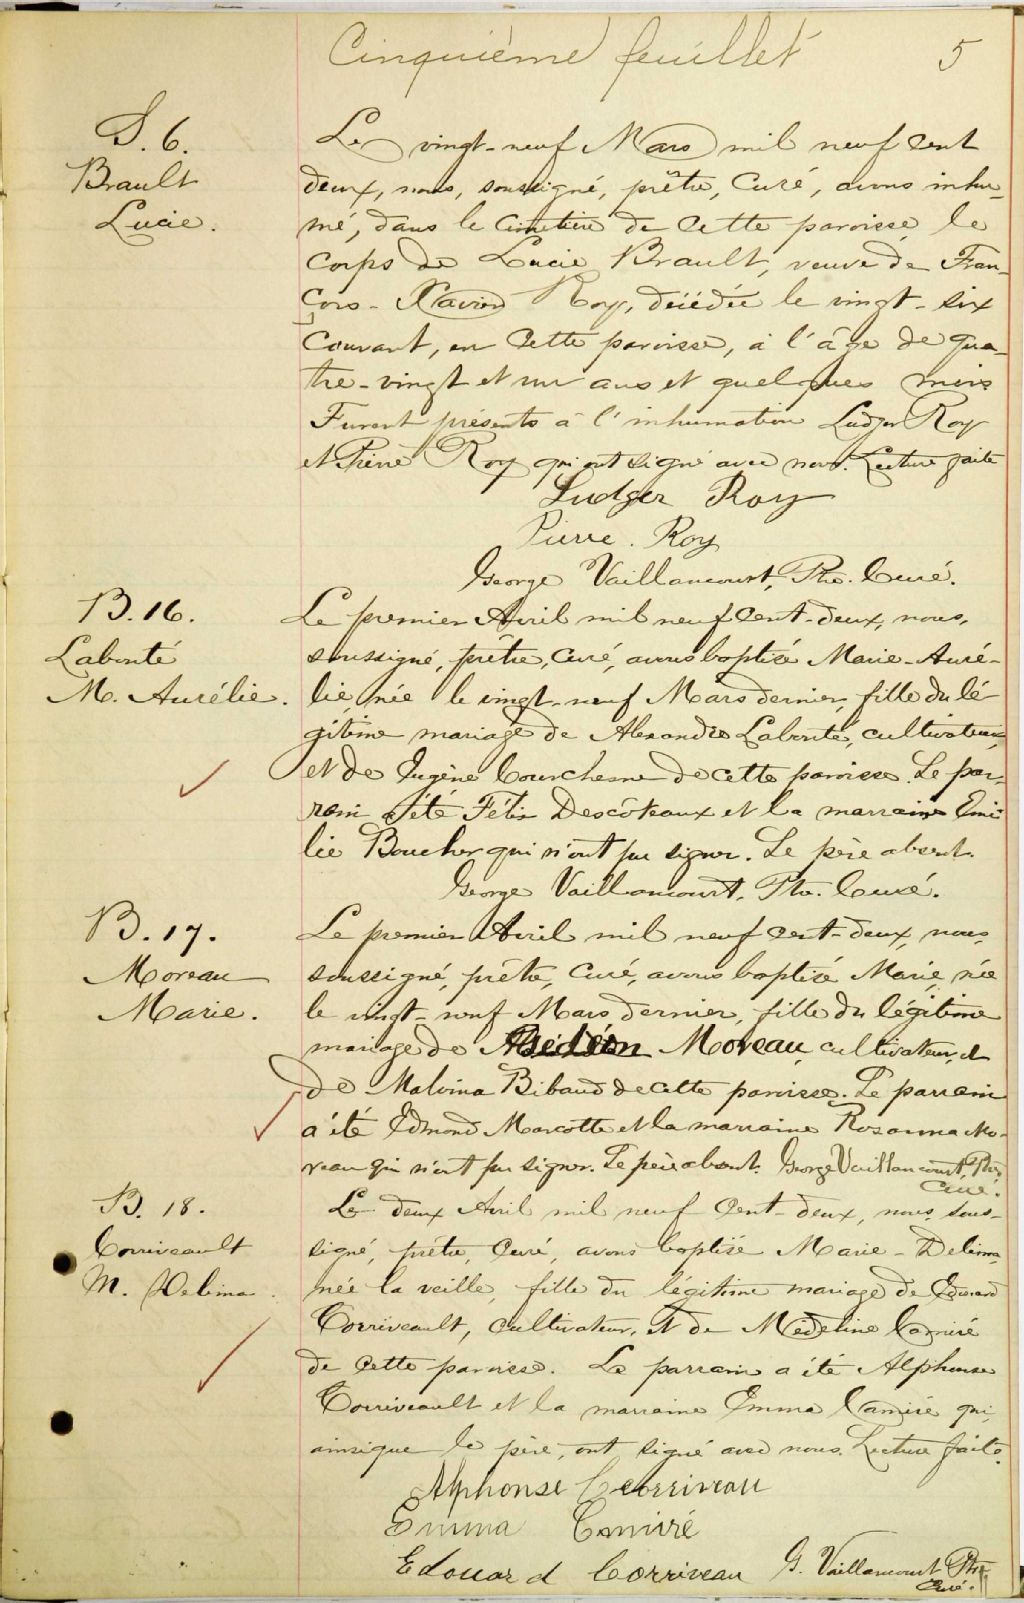 Cinquième feuillet 5
S. 6.
Brault
Lucie.
Le vingt-neuf Mars mil neuf cent
deux, nous, soussigné, prêtre, Curé, avons inhu-
mé, dans le cimetière de cette paroisse, le
corps de Lucie Brault, veuve de Fran-
çois-Xavier Roy, décédée le vingt-six
courant, en cette paroisse, à l'âge de qua-
tre-vingt et un ans et quelques mois
Furent présents à l'inhumation Ludger Roy
et Pierre Roy qui ont signé avec nous. Lecture faite
Ludger Roy
Pierre. Roy
George Vaillancourt, Ptre. Curé.
B. 16.
Labonté
M. Aurélie.
Le premier Avril mil neuf cent-deux, nous,
soussigné, prêtre, Curé, avons baptisé Marie-Auré-
lie, née le vingt-neuf Mars dernier, fille du lé
gitime mariage de Alexandre Labonté, cultivateur,
et de Eugène Courchesne de cette paroisse. Le par-
rain a été Félix Descôteaux et la marraine Emi-
lie Boucher qui n'ont pu signer. Le père absent.
George Vaillancourt, Ptre. Curé.
B. 17.
Moreau
Marie.
Le premier Avril mil neuf cent-deux, nous,
soussigné, prêtre, Curé, avons baptisé Marie, née
le vingt-neuf Mars dernier, fille du légitime
mariage de Moreau, cultivateur, et
de Malvina Bibaud de cette paroisse. Le parrain
a été Edmond Marcotte et la marraine Rosanna Mo-
reau qui n'ont pu signer. Le père absent. George Vaillancourt, Ptre,
Curé.
B. 18.
Corriveault
M. Delima.
Le deux Avril mil neuf cent-deux, nous, sous-
signé, prêtre, Curé, avons baptisé Marie-Delima,
née la veille, fille du légitime mariage de Edouard
Corriveault, cultivateur, et de Médeline Camiré
de cette paroisse. Le parrain a été Alphonse
Corriveault et la marraine Emma Camiré qui,
ainsique le père, ont signé avec nous. Lecture faite.
Alphonse Corriveau
Emma Camiré
Edouard Corriveau G. Vaillancourt Ptre
Curé.